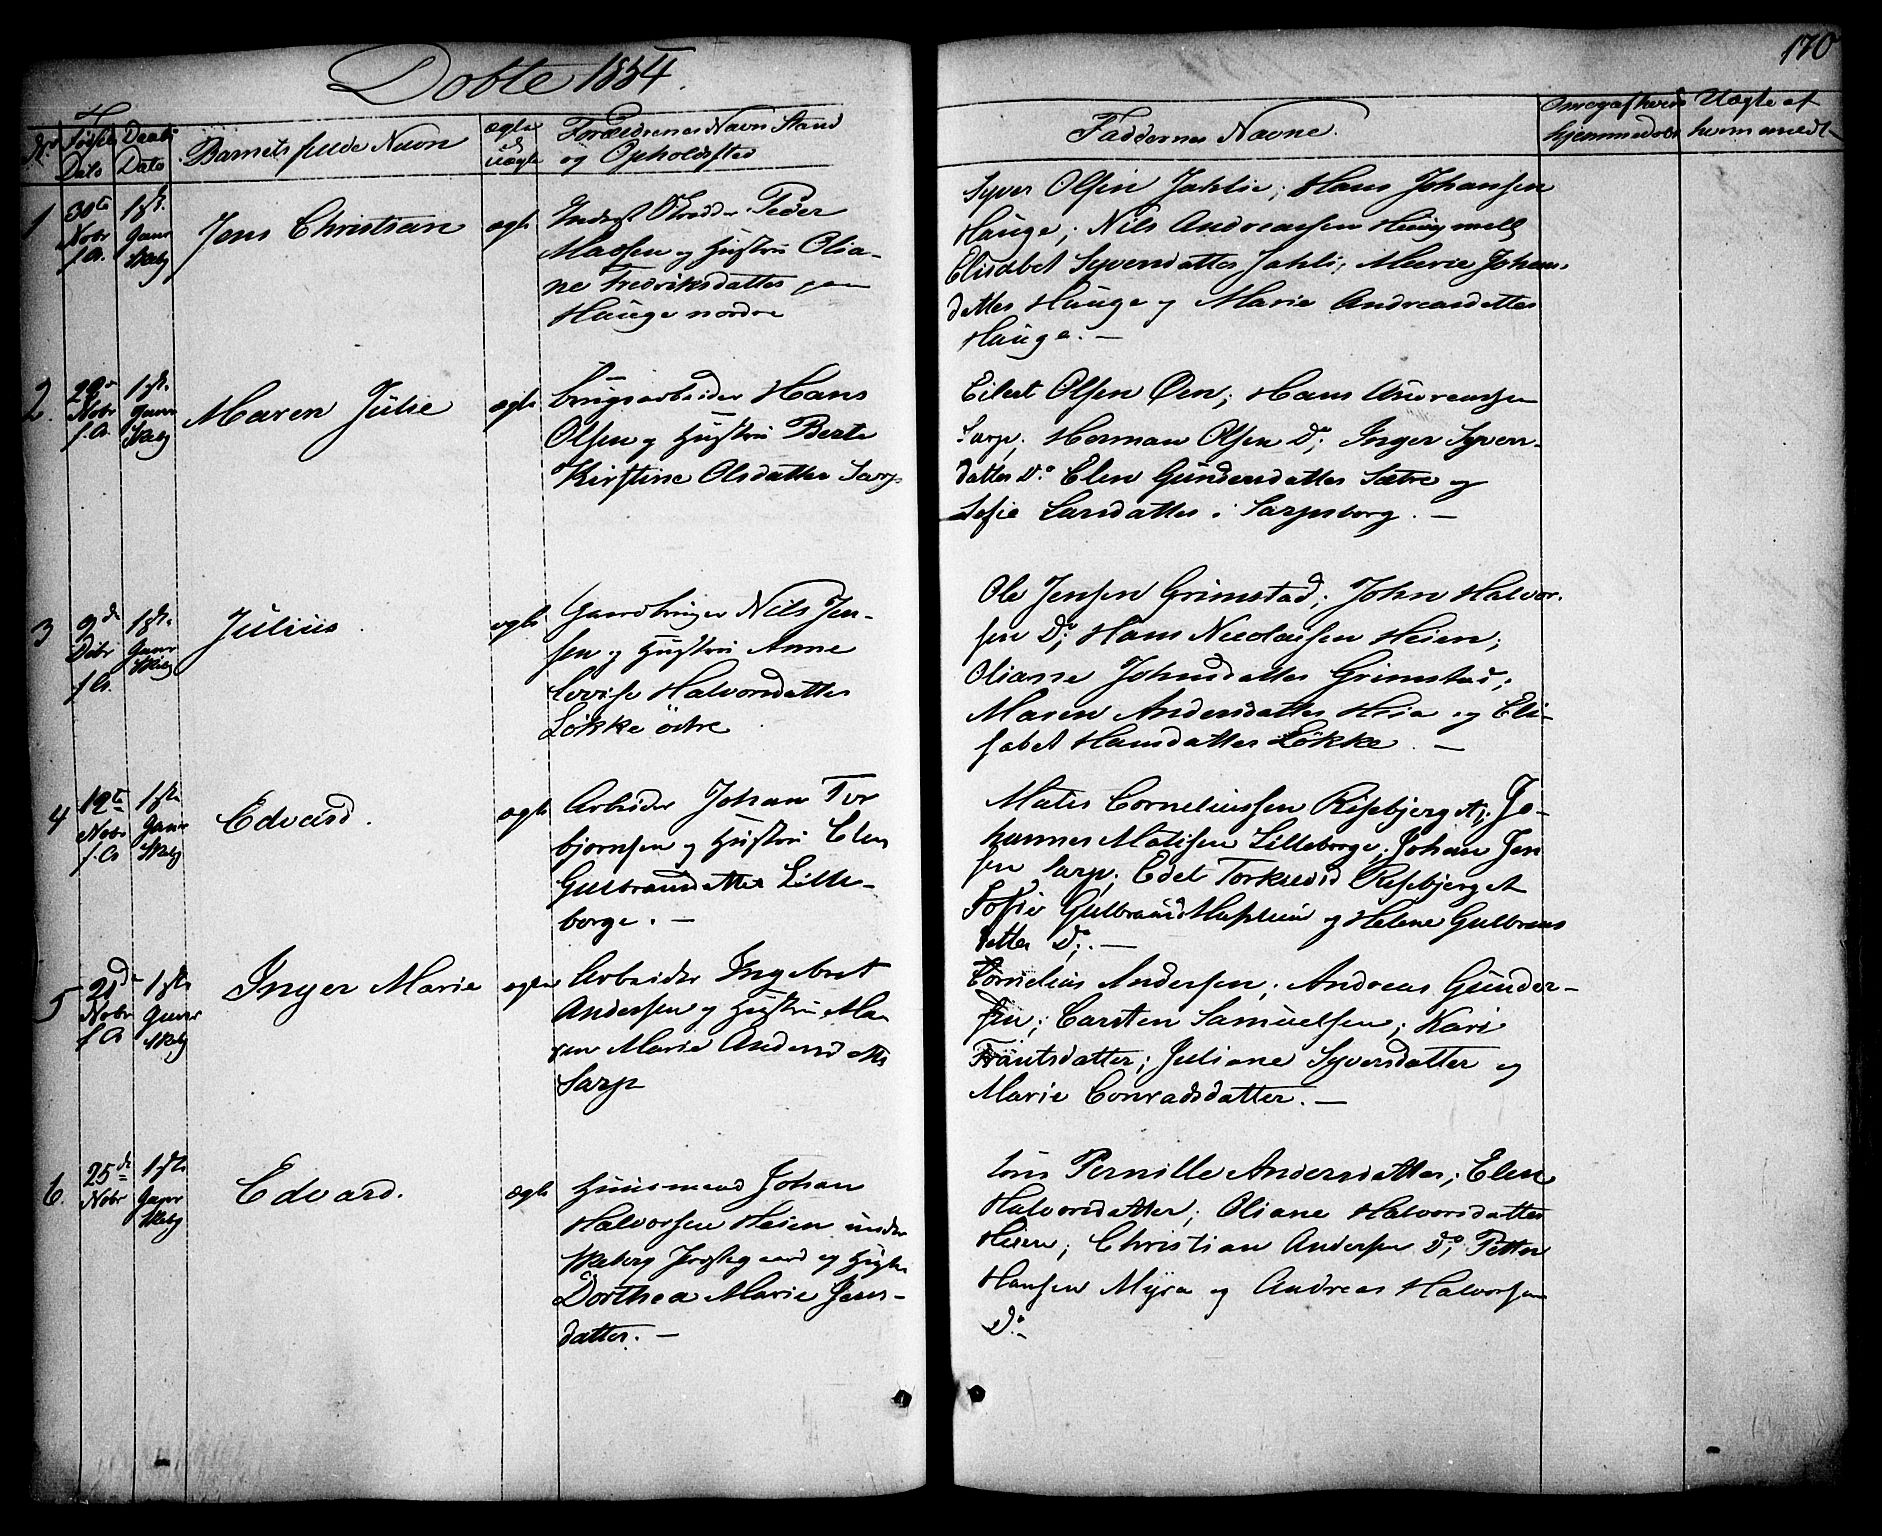 Døbte 1854.
170
No
Fødsels Dato
Daabs Dato
Barnets fulde Navn
ægte el uægte
Forældrenes Navn Stand
og Opholdssted
Faddernes Navne.
hjemmedøbt
Uægte af
hvem anmeldt
1
30te Nobr f.A.
1ste Janr Skbg
Jens Christian
ægte
Peder
Madsen og Hustru Olia-
ne Fredriksdatter
Hauge nordre
Syver Olsen Jahlie; Hans Johansen
Hauge; Nils Andreassen
Elisabet Syversdatter Jahli; Marie Johans
datter Hauge og Maria Andreasdatter
Hauge. —
2.
Nobr f.A.
1ste Janr Skbg
Maren Julie
ægte
brugsarbeider Hans
Olsen og Hustru Berte
Kirstine Olsdatter Sarp
Eilert Olsen Øen; Hans Andreassen
Sarp; Herman Olsen Do; Inger Syvers-
datter Do. Elen Gundersdatter Sætre og
Sofie Larsdatter i Sarpsborg. —
3
9de Dcbr f.A.
1ste Janr Skbg
Julius.
ægte
Gaardbruger Nils Jen-
sen og Hustru Anne
Lovise Halvorsdatter
Løkke østre
Ole Jensen Grimstad; John Halvor-
sen Do; Hans Nicolaisen Heien;
Oliane Johnsdatter Grimstad;
Maren Andersdatter Heia og Eli-
sabet Hansdatter Løkke. —
4
19te Nobr f.A.
1ste Janr Skbg
Edvard.
ægte
Arbeider Johan Tor
bjørnsen og Hustru Elen
Gulbrandsdatter Lille-
borge. —
Mathis Corneliussen Risebjerget; Jo-
hannes Matisen Lilleborge; Johan Jen
sen Sarp; Edel Torkilsd Risebjerget
Sofie Gulbrands og Helene Gulbrands
datter Do. —
5
21de Nobr f.A.
1ste Janr Skbg
Inger Marie
ægte
Arbeider Ingebret
Andersen og Hustru Ma
ren Marie Andersdatter
Sarp
Cornelius Andersen; Andreas Gunder-
sen; Carsten Samuelsen; Kari
Frantsdatter; Juliane Syversdatter og
Marie Conradsdatter. —
6.
25de Nobr
1ste Janr Skbg
Edvard.
ægte
Huusmand Johan
Halvorsen Heien under
Skaberg Præstegaard og Hustru
Dorthea Marie Jens-
datter. —
Pernille Andersdatter; Elen
Halvorsdatter; Oliane Halvorsdatter
Heien; Christian Andersen Do; Petter
Hansen Myra og Andreas Halvorsen
Do.